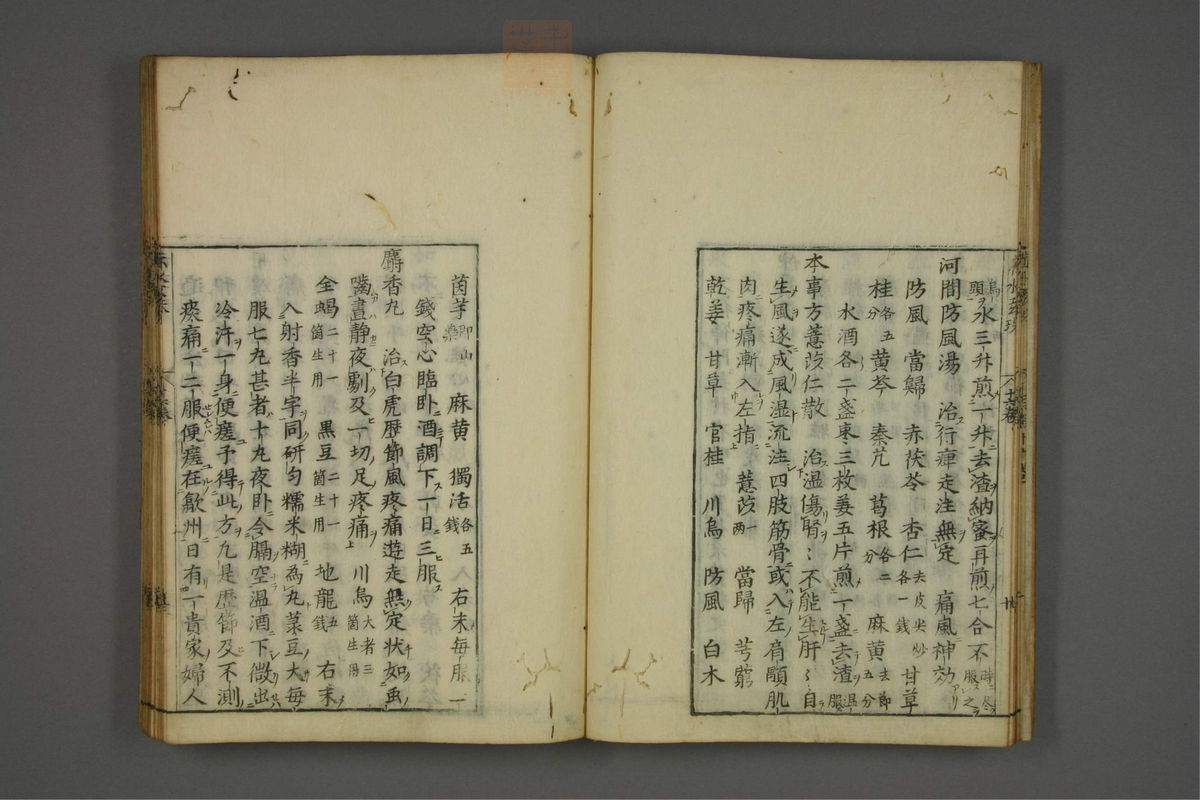 頭水三升煎一升去渣納蜜再煎七合不時服之
河間防風湯 治行痺走注無定 痛風神効
防風 當歸 赤茯苓 杏仁去皮尖炒各一錢 甘草
桂各五分 黄芩 秦艽 葛根各二分 麻黄去節五分
水酒各二盞棗三枚姜五片煎一盞去渣温服
本事方薏苡仁散 治湿傷腎〻不能生肝〻自
生風遂成風湿流注四肢筋骨或入左肩顒肌
肉疼痛漸入左指 薏苡一兩 當歸 芎藭
乾姜 甘草 官桂 川烏 防風 白木
茵芋即山桑 麻黄 獨活各五錢 入右末每服一
錢空心臨卧酒調下一日三服
麝香丸 治白虎歴節風疼痛遊走無定状如虫
嚙晝静夜劇及一切足疼痛 川烏大者三箇生用
全蝎二十一箇生用 黒豆二十一箇生用 地龍五錢 右末
入射香半字同研匀糯米糊為丸菉豆大每
服七丸甚者十丸夜卧令膈空温酒下微出
冷汗一身便瘥予得此方凢是歴節及不測
疼痛一二服便瘥在歙州日有一貴家婦人